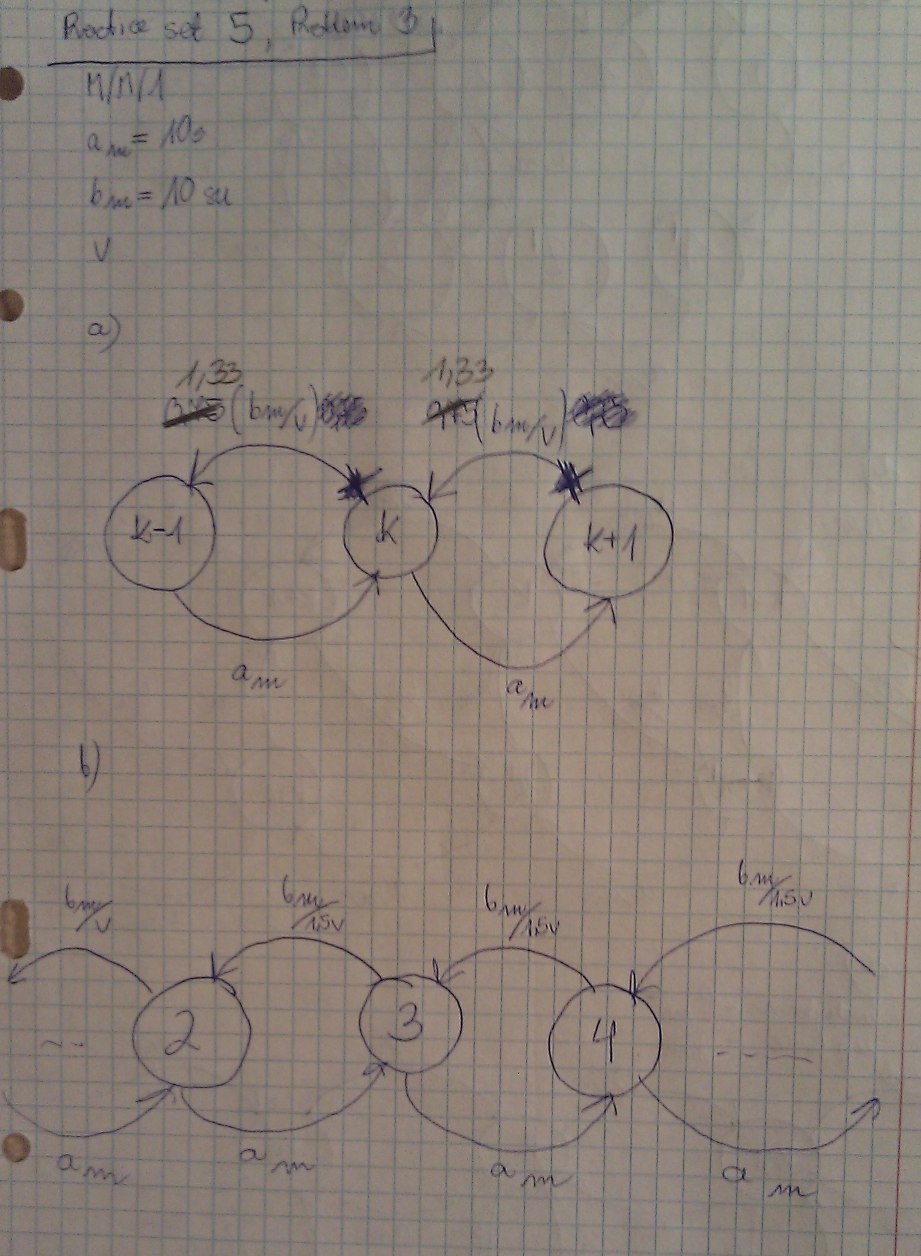 Practice set 5, Problem 3
M/M/1
a_m = 10s
b_m = 10 su
V
a)
1,33 1,33
(bm/v) (bm/v)
k-1 k k+1
a_m a_m
b)
bm/v bm/1,5v bm/1,5v bm/1,5v
2 3 4
a_m a_m a_m a_m